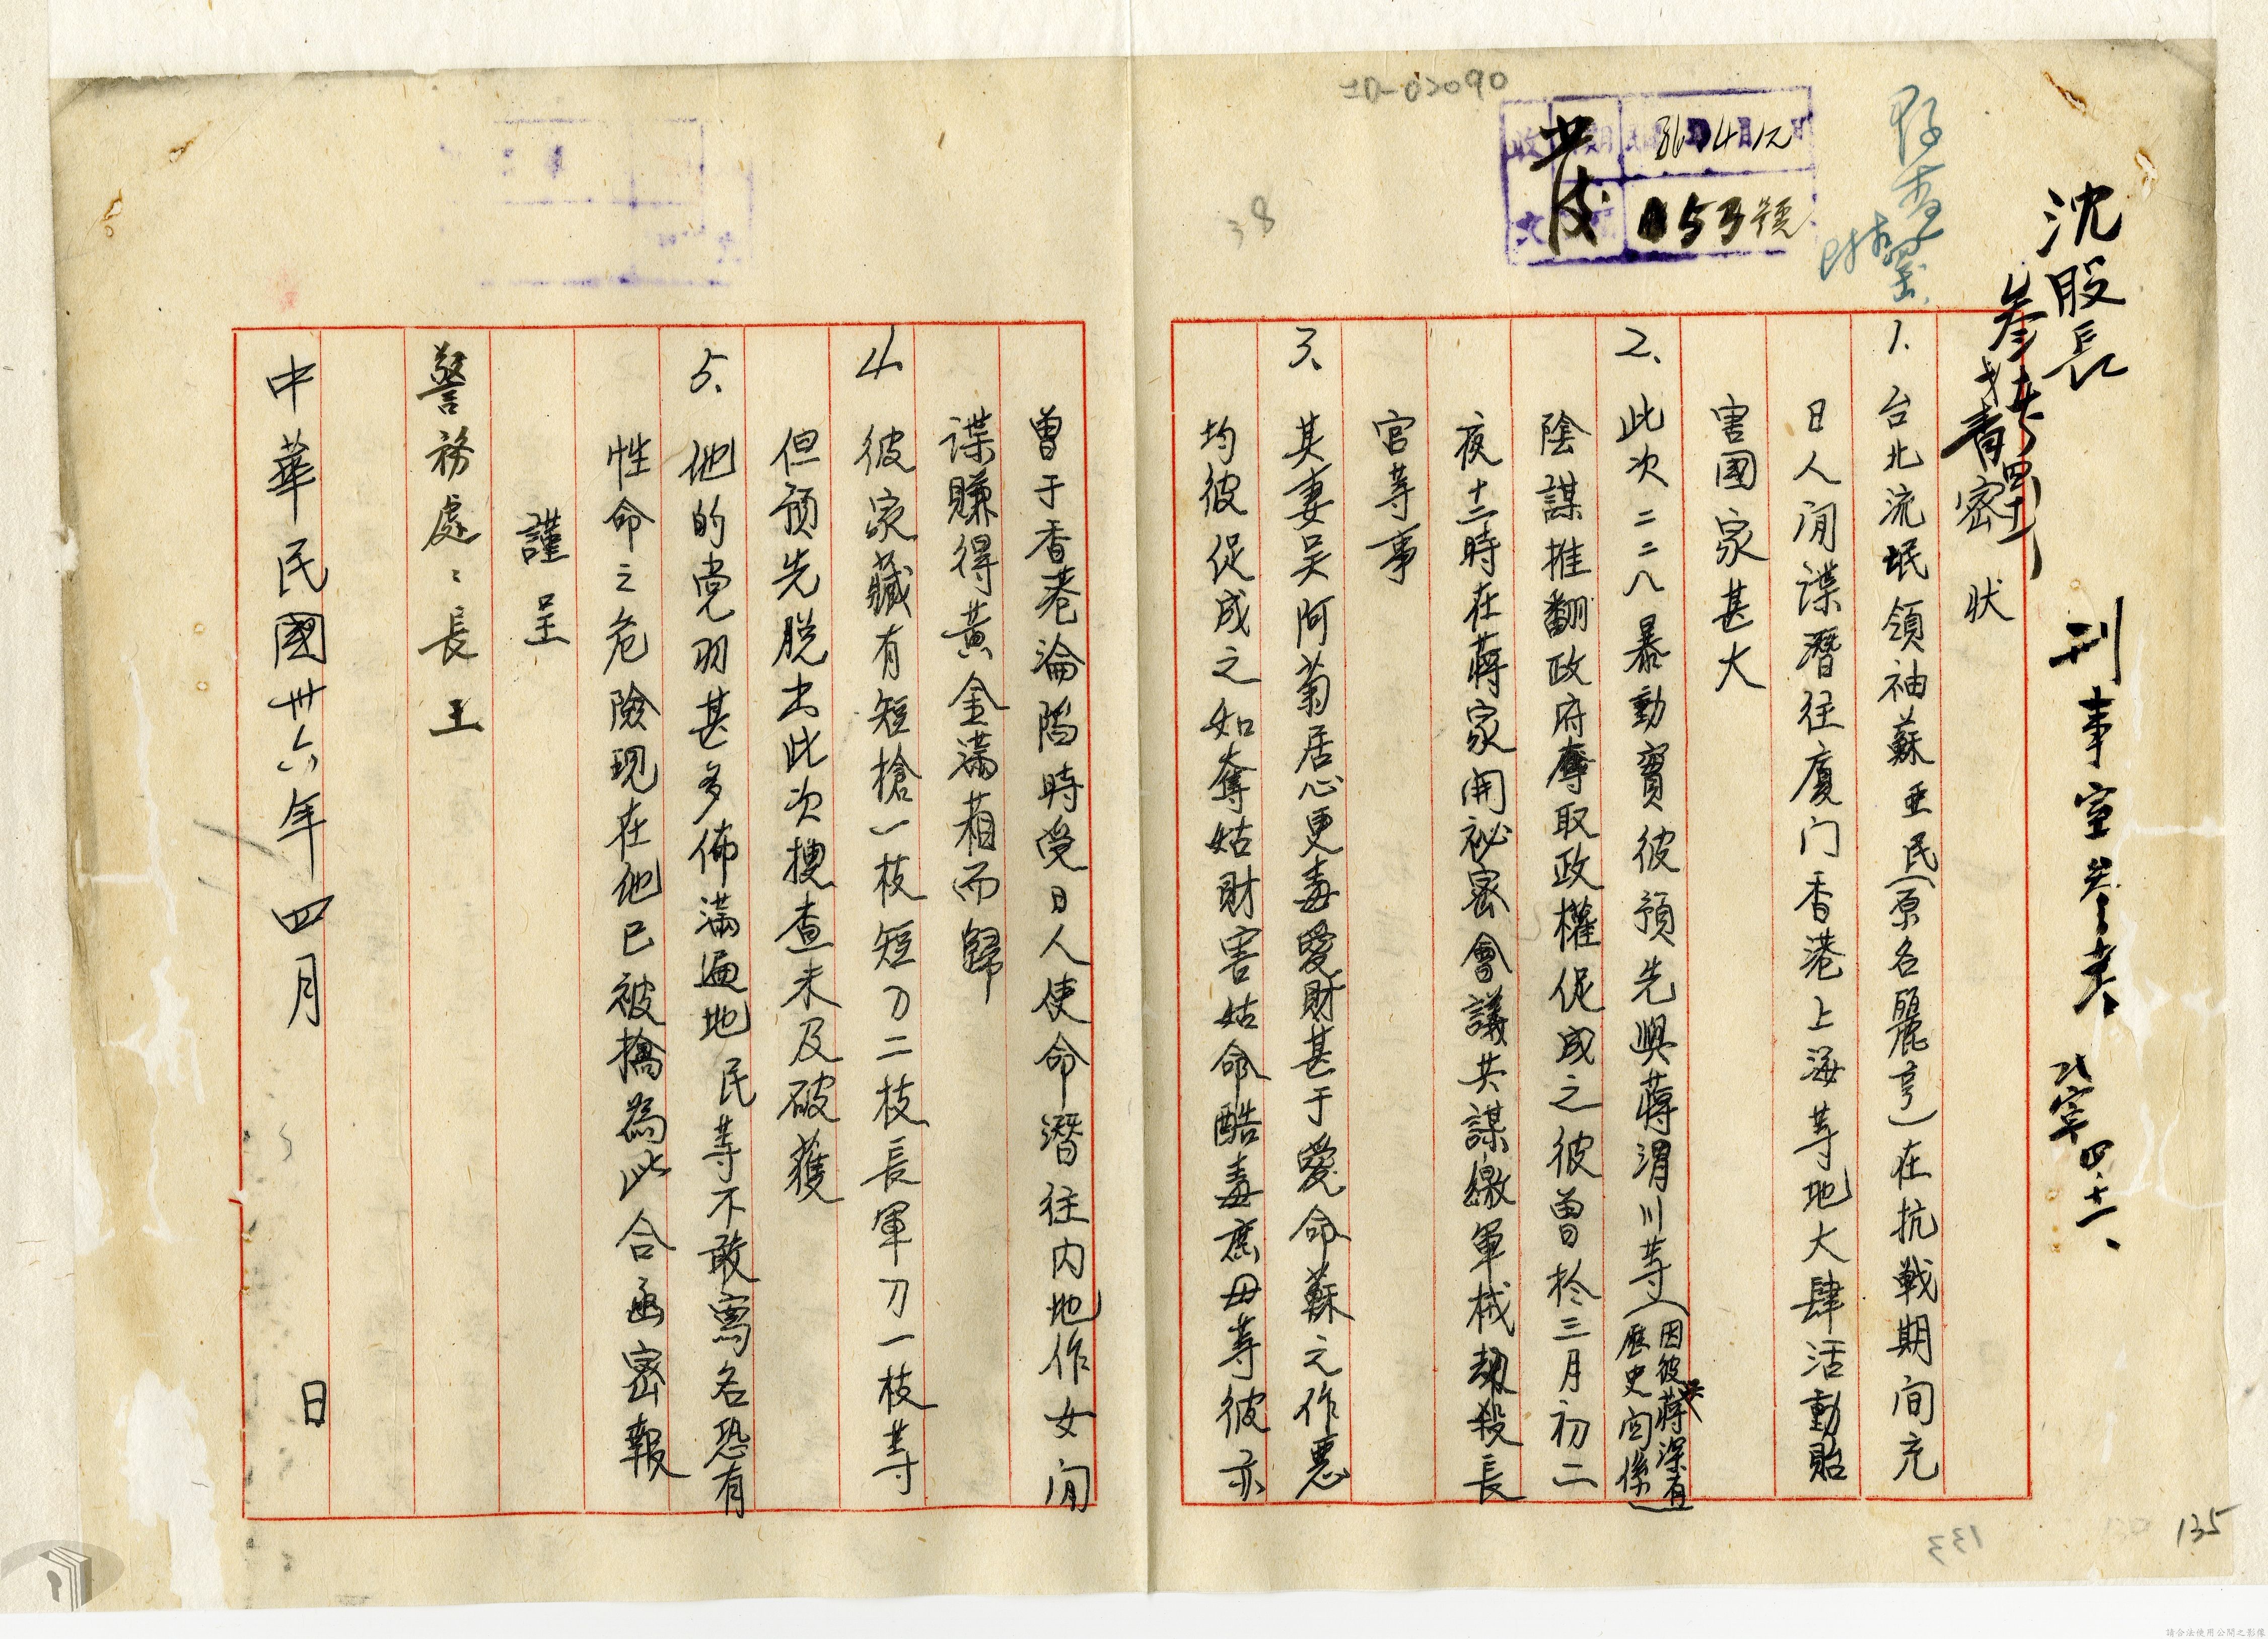 ID-02090
36 4 12
053號
38
沈股長
參考
刑事室參考
四·十二、
密狀
1. 台北流氓領袖蘇亜民(原名麗亨)在抗戦期间充
日人间諜潛往廈门香港上海等地大肆活動貽
害國家甚大
2、此次二二八暴動實彼預先與蔣渭川等(因彼與蔣深有歷史関係)
陰謀推翻政府奪取政權促成之彼曾於三月初二
夜十二時在蔣家開祕密會議共謀繳軍械刼殺長
官等事
3、其妻吴阿菊居心更毒愛財甚于愛命蘇之作惡
均彼促成之如奪姑財害姑命酷毒庶母等彼亦
曾于香港淪陷時受日人使命潛往内地作女间
諜賺得黃金滿箱而歸
4. 彼家藏有短槍一枝短刀二枝長軍刀一枝等
但预先脱出此次搜查未及破獲
5. 他的党羽甚多佈滿遍地民等不敢寫名恐有
性命之危險现在他已被擒為此合函密報
謹呈
警務處、長王
中華民國卅六年四月 日
135
133
請合法使用公開之影像